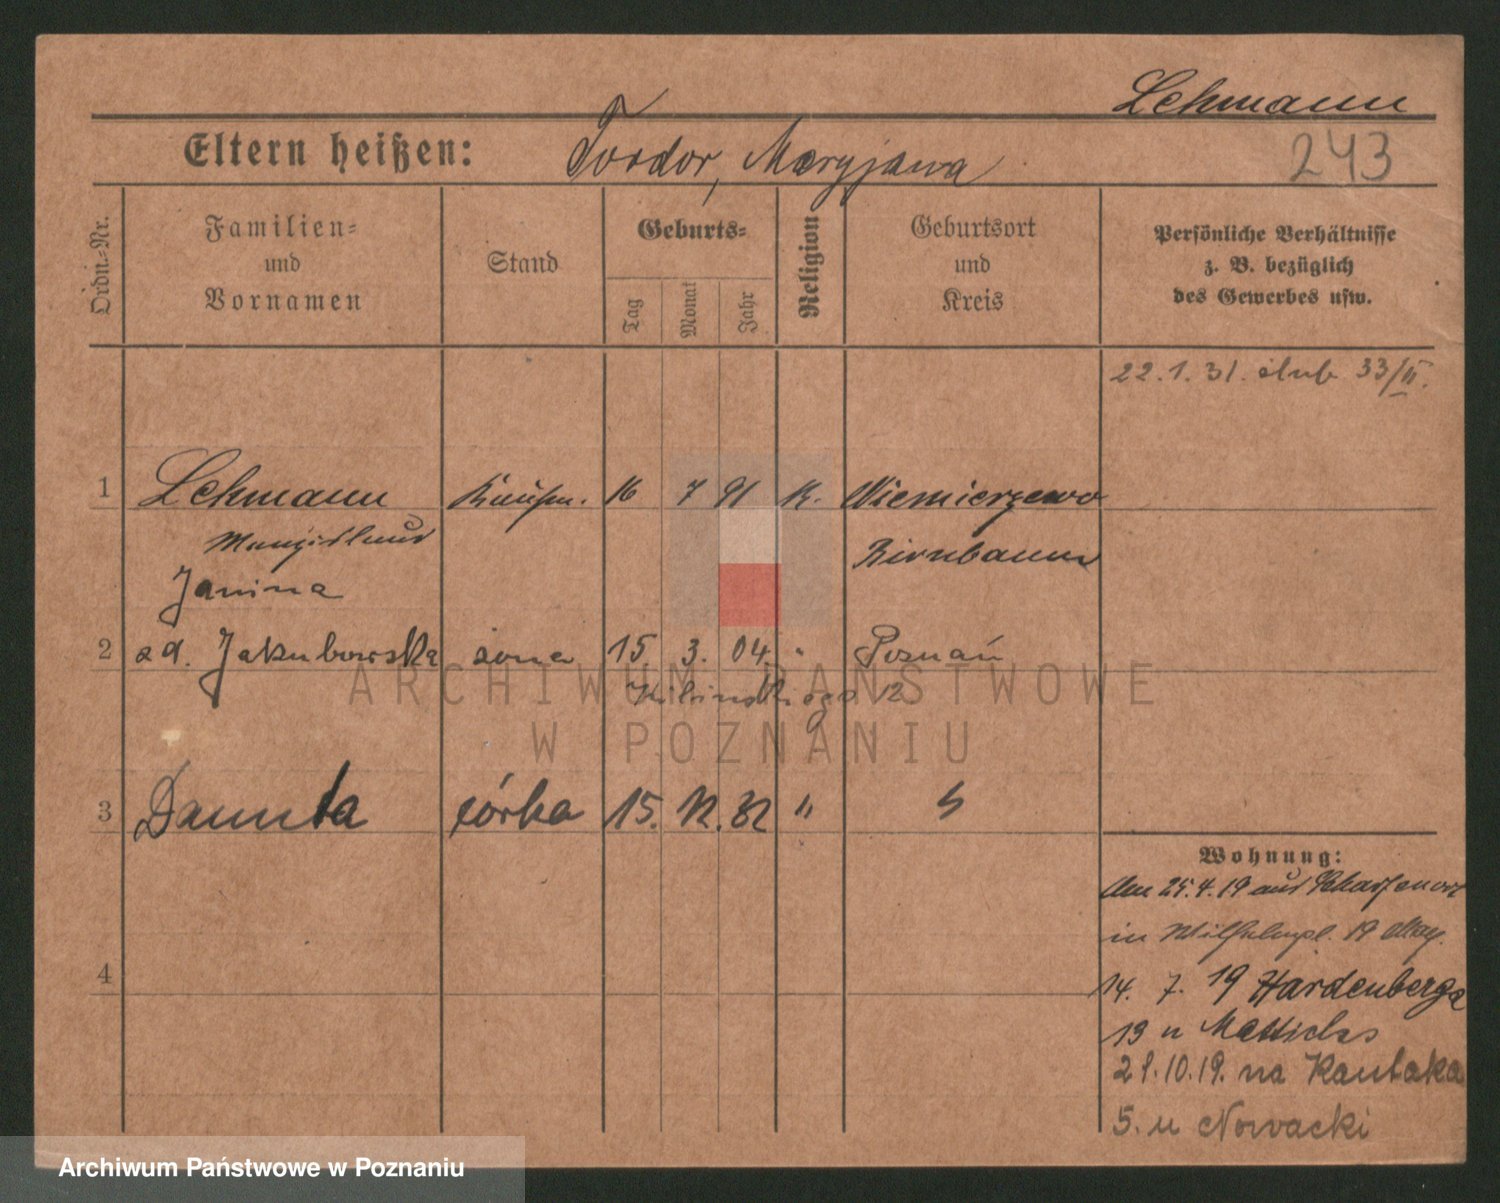 Lehmann
Eltern heißen: Teodor, Maryjanna
243
Ordn.=Nr.
Familien=
und
Vornamen
Stand
Geburts=
Tag
Monat
Jahr
Religion
Geburtsort
und
Kreis
Persönliche Verhältnisse
z. B. bezüglich
des Gewerbes usw.
22.1.31. ślub 33/II.
1 Lehmann Kaufm. 16 7 91 K. Niemierzewo
Birnbaum
Janina
2 zd. Jakubowska żona 15 3. 04. " Poznań
Kilińskiego 12
3 Danuta córka 15. 12. 32 " "
4
Wohnung:
Am 25.4.19 aus Scharfenort
in Wilhelmpl. 19
14. 7. 19 Hardenberga
13 u
21.10.19. na Kantaka
5. u Nowacki
ARCHIWUM PAŃSTWOWE
W POZNANIU
Archiwum Państwowe w Poznaniu